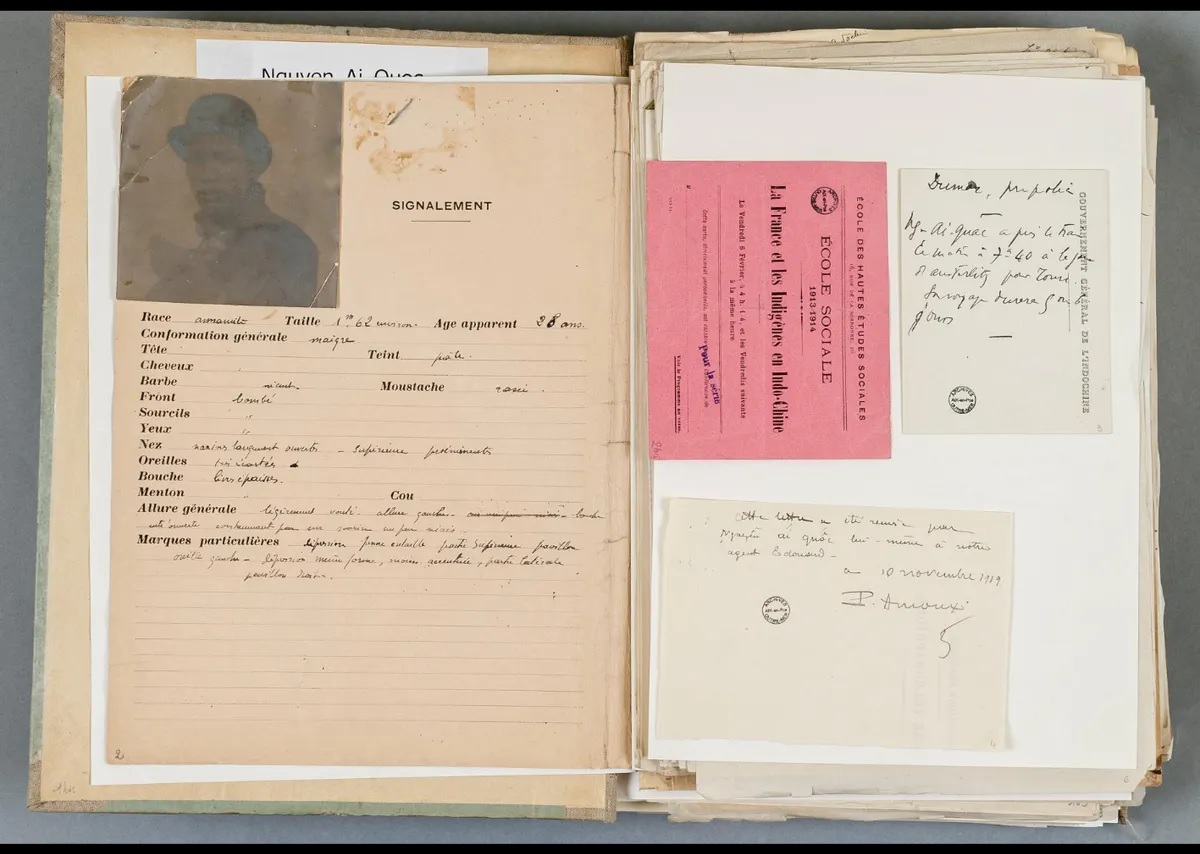 Nguyen Ai Quoc
SIGNALEMENT
Race annamite Taille 1m 62 environ. Age apparent 28 ans.
Conformation générale maigre
Tête Teint pâle.
Cheveux
Barbe Moustache rasée.
Front bombé
Sourcils "
Yeux "
Nez narines largement ouvertes
Oreilles très écartées
Bouche lèvres épaisses.
Menton Cou
Allure générale légèrement vouté allure gauche - bouche
entr'ouverte constamment par un sourire un peu niais.
Marques particulières partie supérieure pavillon
oreille gauche - même forme, moins accentuée, partie latérale
pavillon
2
ÉCOLE DES HAUTES ÉTUDES SOCIALES
16, RUE DE LA SORBONNE
ÉCOLE SOCIALE
1913-1914
La France et les Indigènes en Indo-Chine
Le Vendredi 6 Février, à 4 h. 1/4, et les Vendredis suivants
à la même heure
Cette carte, strictement personnelle, est
pour la série
Voir le Programme au verso.
GOUVERNEMENT GÉNÉRAL DE L'INDOCHINE
Ng- Ai-Quâc a pris le train
Ce matin à 7h 40 à la gare
d'austerlitz pour
Son voyage durera
jours
3
Cette lettre a été remise par
ai quâc lui-même à notre
agent Edouard -
10 novembre 1919
P. Arnoux
6